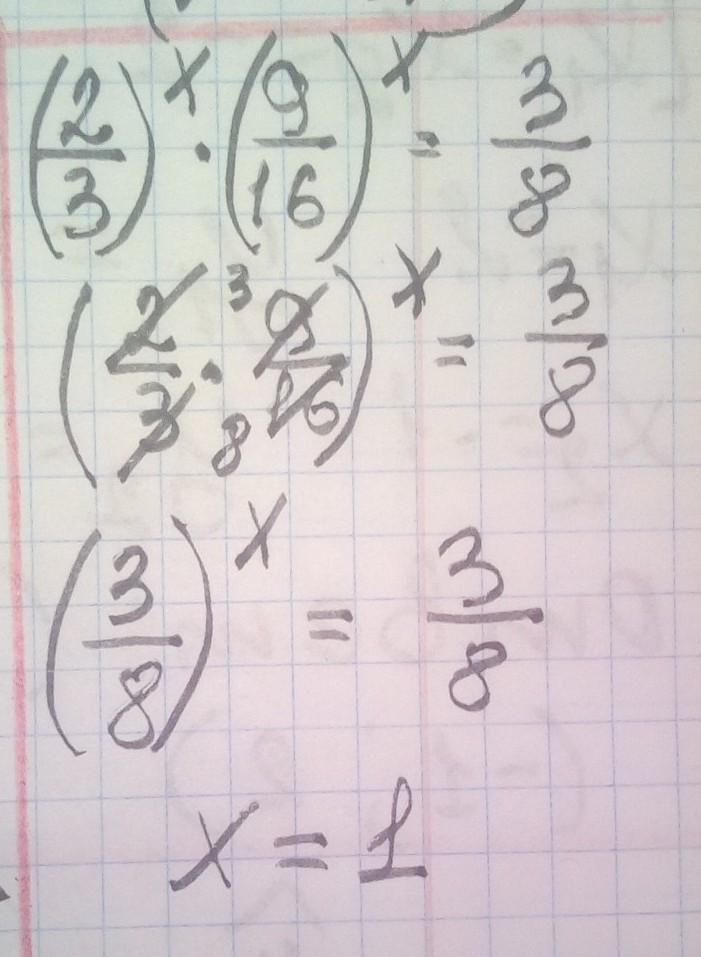 (2/3)^x · (9/16)^x = 3/8
(2/3 · ³9/₈16)^x = 3/8
(3/8)^x = 3/8
x = 1